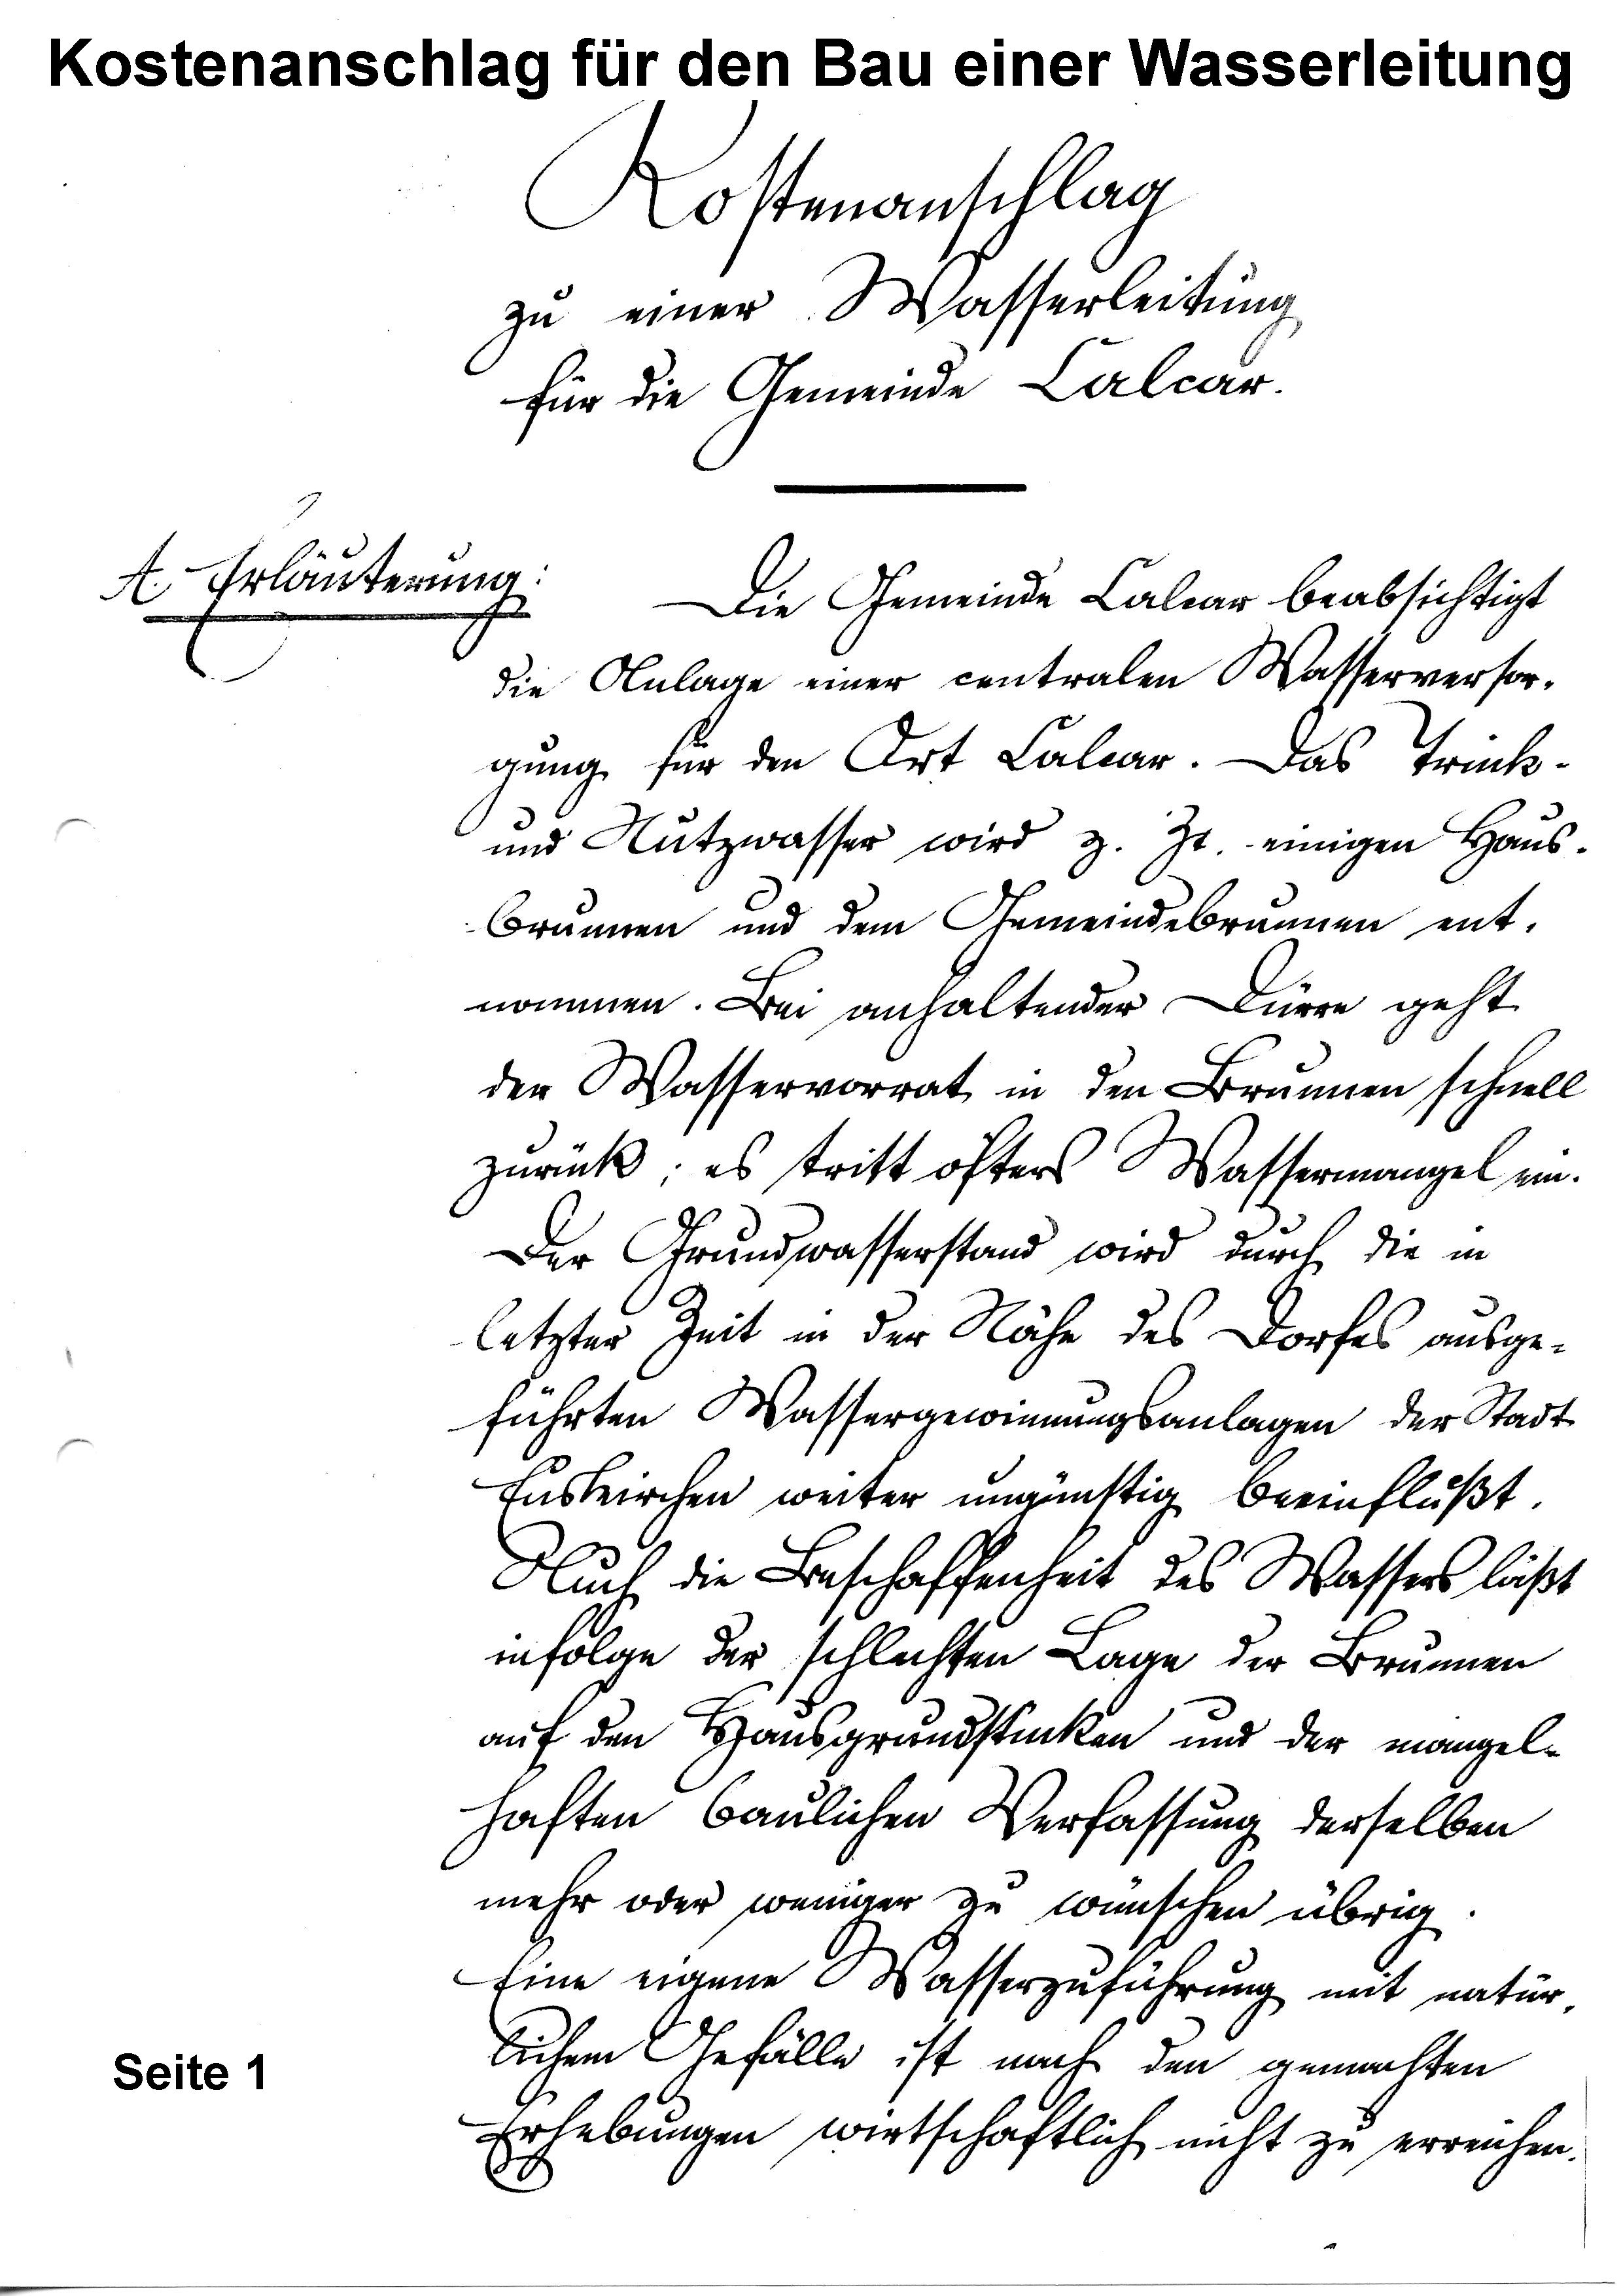 Kostenanschlag für den Bau einer Wasserleitung
Kostenanschlag
zu einer Wasserleitung
für die Gemeinde Calcar.
A. Erläuterung:
Die Gemeinde Calcar beabsichtigt
die Anlage einer centralen Wasserversor-
gung für den Ort Calcar. Das Trink-
und Nutzwasser wird z. Zt. einigen Haus-
brunnen und dem Gemeindebrunnen ent-
nommen. Bei anhaltender Dürre geht
der Wasservorrat in den Brunnen schnell
zurück; es tritt öfters Wassermangel ein.
Der Grundwasserstand wird durch die in
letzter Zeit in der Nähe des Dorfes ausge-
führten Wassergewinnungsanlagen der Stadt
Euskirchen weiter ungünstig beeinflußt.
Auch die Beschaffenheit des Wassers läßt
infolge der schlechten Lage der Brunnen
auf den Hausgrundstücken und der mangel-
haften baulichen Verfassung derselben
mehr oder weniger zu wünschen übrig.
Eine eigene Wasserzuführung mit natür-
lichem Gefälle ist nach den gemachten
Erhebungen wirtschaftlich nicht zu erreichen.
Seite 1